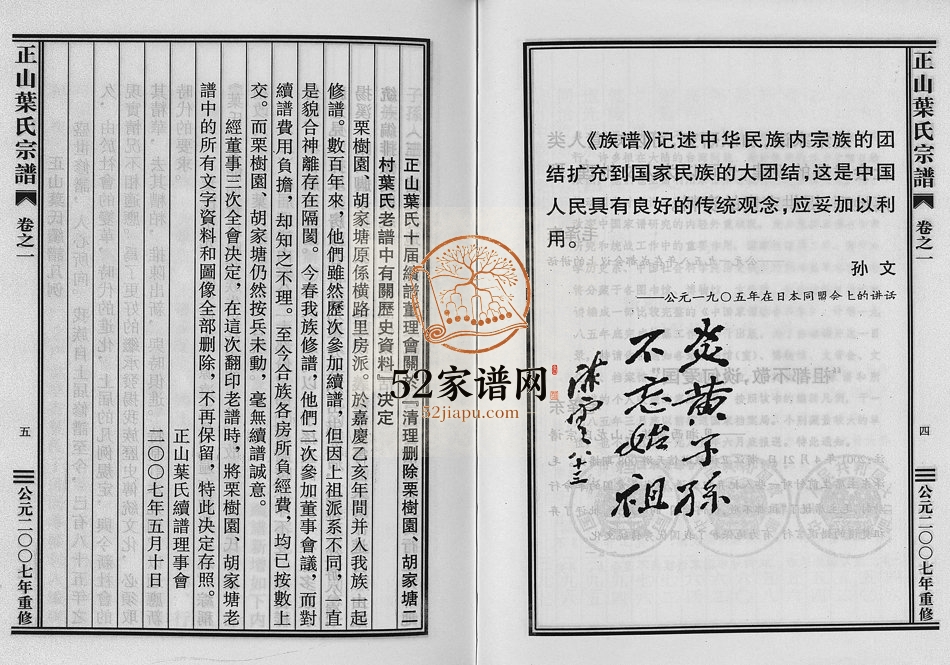 正山葉氏宗譜
卷之一
四
公元二〇〇七年重修
《族谱》记述中华民族内宗族的团
结扩充到国家民族的大团结，这是中国
人民具有良好的传统观念，应妥加以利
用。
孙 文
——公元一九〇五年在日本同盟会上的讲话
炎黄子孫
不忘始祖
陳雲 八十三
正山葉氏十届續譜董理會關於『清理删除栗樹園、胡家塘二
村葉氏老譜中有關歷史資料』决定
栗樹園、胡家塘原係横路里房派。於嘉慶乙亥年間并入我族一起
修譜。數百年來，他們雖然歷次參加續譜，但因上祖派系不同，一直
是貌合神離存在隔閡。今春我族修譜，他們二次參加董事會議，而對
續譜費用負擔，却知之不理。至今合族各房所負經費，均已按數上
交。而栗樹園、胡家塘仍然按兵未動，毫無續譜誠意。
經董事三次全會决定，在這次翻印老譜時，將栗樹園、胡家塘老
譜中的所有文字資料和圖像全部删除，不再保留，特此决定存照。
正山葉氏續譜理事會
二〇〇七年五月十日
正山葉氏宗譜
卷之一
五
公元二〇〇七年重修
52家谱网
52jiapu.com